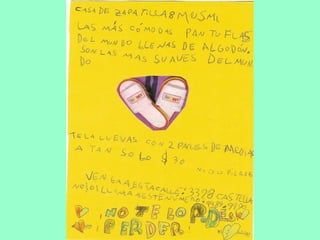 CASA DE ZAPATILLAS MUSMI
LAS MÁS CÓMODAS PANTUFLAS
DEL MUNDO LLENAS DE ALGODÓN.
SON LAS MAS SUAVES DEL MUN
DO
TE LA LLEVAS CON 2 PARES DE MEDIAS
A TAN SOLO $30
VENGA A ESTA CALLE: 3398 CASTELLA
NOS O LLAMA ESTE NUMERO:
¡NO TE LO PODES
PERDER!